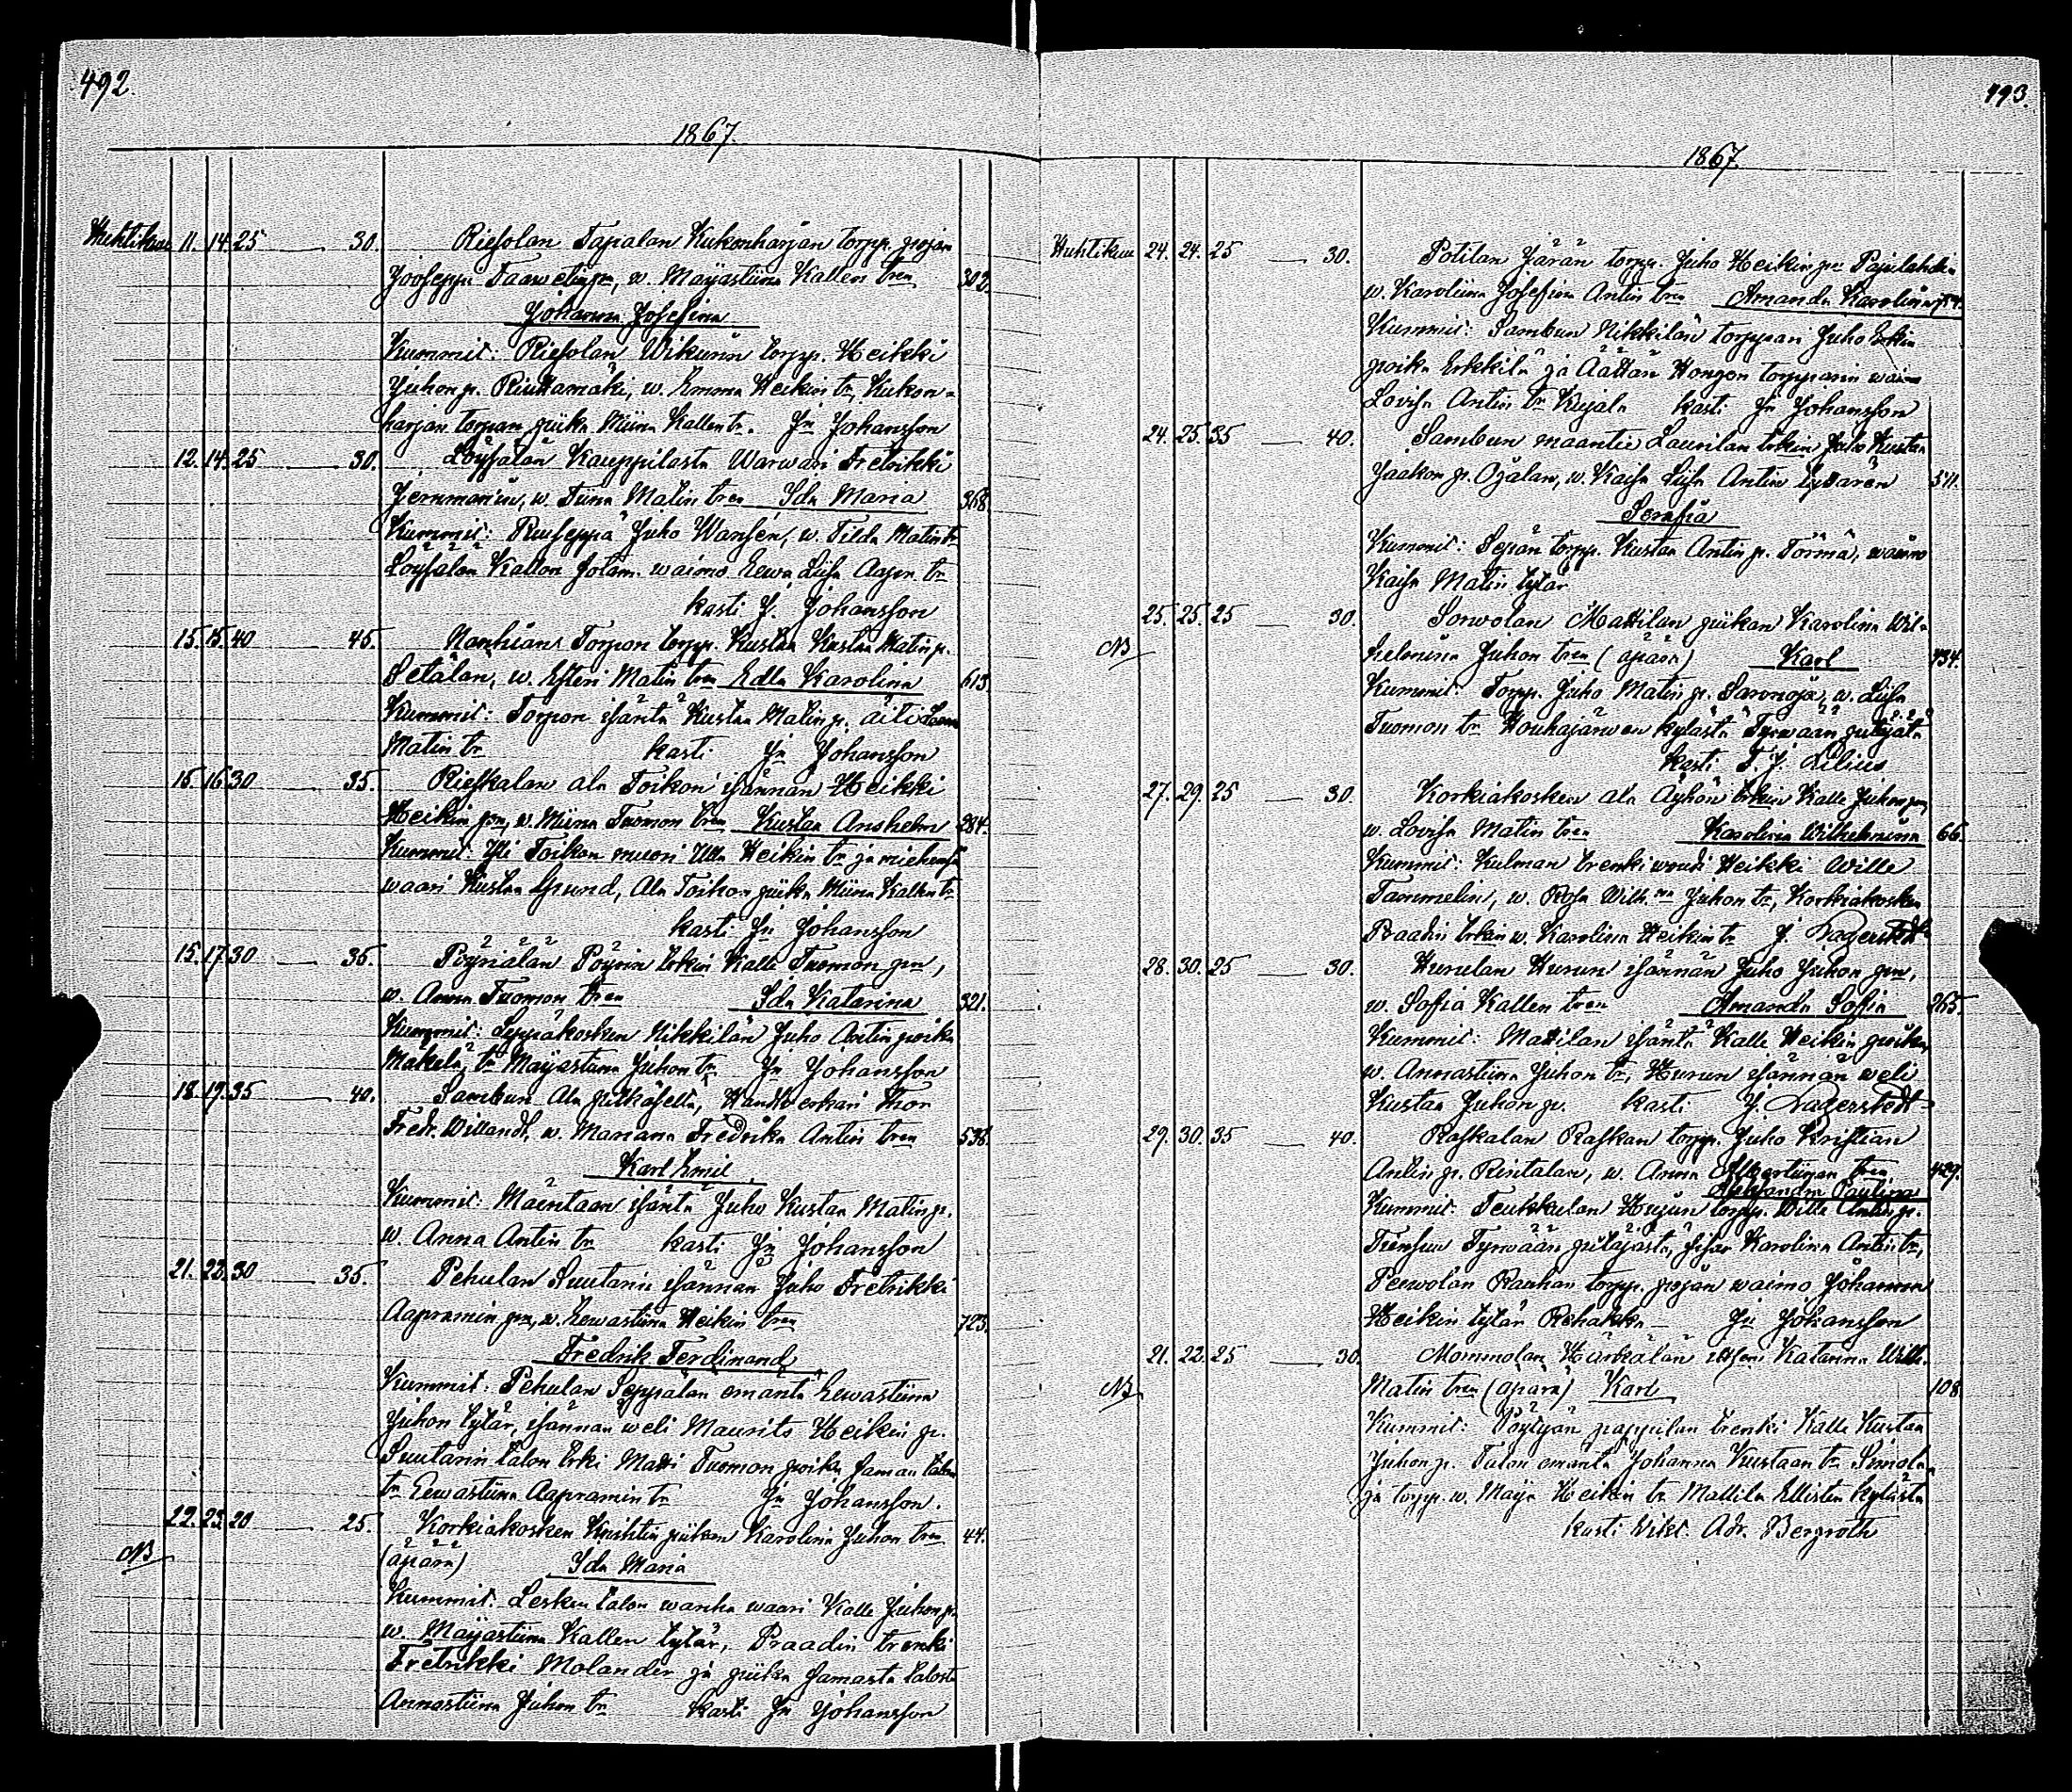 492.
1867.
Huhtikuu 11. 14. 25 — 30. Riesolan Tapalan Kukonharjan torpp. pojan
Jooseppi Taawetinpn, w. Maijastiina Kallen trn 302.
Johanna Josefina
Kummit: Riesolan Wikunin torpp. Heikki
Juhon p. Riuttamäki, w. Emma Heikin tr, Kukon-
harjan torpan piika Miina Kallen tr. Jn Johansson
12. 14. 25 — 30. Löysälän Kauppilasta Warwari Fretrikki
w. Tiina Matin tren Ida Maria 368.
Kummit: Ruuseppä Juho Wansen, w. Tilda Matin tr
Löysälän Kallon sotam. waimo Eewa Liisa Aapn. tr
kasti J. Johansson
15. 15. 40 — 45. Nanhians Torpon torpp. Kustaa Kustaa Matin p.
Setälän, w. Esteri Matin tren Edla Karolina 613.
Kummit: Torpon isäntä Kustaa Matin p. äiti
Matin tr kasti Jn Johansson
15. 16. 30 — 35. Rieskalan ala Toikon isännän Heikki
Heikin pn, w. Miina Tuomon tren Kustaa Anshelm 284.
Kummit: Yli Toikon muori Ulla Heikin tr ja miehensä
waari Kustaa Grund, Ala Toikon piika Miina Kallen tr
kasti Jn Johansson
15. 17. 30 — 35. Pöyriälän Pöyrin trkin Kalle Tuomon pn,
w. Anna Tuomon tren Ida Katarina 321.
Kummit: Leppäkosken Nikkilän Juho Antin poika
Mäkelä, tr Maijastiina Juhon tr Jn Johansson
18. 19. 35 — 40. Sambun Ala pitkäsellä, Handtverkari Thor
Fredr. Willandt, w. Mariana Fredrika Antin tren 538.
Karl Emil
Kummit: Mäentaan isäntä Juho Kustaa Matin p.
w. Anna Antin tr kasti Jn Johansson
21. 23. 30 — 35. Pehulan Suutarin isännän Juho Fretrikki
Aapramin pn, w. Eewastiina Heikin tren 723.
Fredrik Ferdinand
Kummit: Pehulan Seppälän emäntä Eewastiina
Juhon tytär, isännän weli Maurits Heikin p.
Suutarin talon trki Matti Tuomon poika saman talon
tr Eewastiina Aapramin tr Jn Johansson.
22. 23. 20 — 25. Korkiakosken Krishtin piikan Karolina Juhon tren 44.
NB (äpärä) Ida Maria
Kummit: Lesken talon wanha waari Kalle Juhon p.
w. Maijastiina Kallen tytär, Praadin trenki
Fretrikki Molander ja piika samasta talosta
Annastiina Juhon tr kasti Jn Johansson
493.
1867.
Huhtikuu 24. 24. 25 — 30. Potilan Järän torpp. Juho Heikin pn Pajulahden
w. Karoliina Josefina Antin tren Amanda Karolina
Kummit: Sambun Nikkilän torppari Juho Erkin
poika Erkkilä ja Äättän Hongon torpparin waimo
Lovisa Antin tr Kujala kasti Jn Johansson
24. 25. 35 — 40. Sambun maantie Laurilan trkin Juho Kustaa
Jaakon p. Ojalan, w. Kaisa Liisa Antin tyttären 511.
Serafia
Kummit: Sepän torpp. Kustaa Antin p. Törmä, waimo
Kaisa Matin tytär
25. 25. 25 — 30. Sorwolan Mattilan piikan Karolina Wil-
NB helmina Juhon tren (äpärä) Karl 434.
Kummit: Torpp. Juho Matin p. Saronoja, w. Liisa
Tuomon tr Houhajärwen kylästä Tyrwään pitäjätä
kasti F. J. Lilius
27. 29. 25 — 30. Korkiakosken ala Äyhön trkin Kalle Juhon pn,
w. Lovisa Matin tren Karolina Wilhelmina 66.
Kummit: Kulman trenki woudi Heikki Wille
Tammelin, w. Rosa Wilh.na Juhon tr, Korkiakosken
Praadin trkin w. Karolina Heikin tr J. Lagerstedt
28. 30. 25 — 30. Hurulan Hurun isännän Juho Juhon pn,
w. Sofia Kallen tren Amanda Sofia 265.
Kummit: Mattilan isäntä Kalle Heikin poika,
w. Annastiina Juhon tr, Hurun isännän weli
Kustaa Juhon p. kasti J. Lagerstedt
29. 30. 35 — 40. Raskalan Raskan torpp. Juho Kristian
Antin p. Rintalan, w. Anna Albertiinan tren 429.
Aleksandra Paulina
Kummit: Teukkulan Hujun torpp. Wille Antin p.
Tyrwään pitäjästä, sisar Karolina Antin tr,
Peewolan Rauhan torpp. pojan waimo Johanna
Heikin tytär Rohakka — Jn Johansson
21. 22. 25 — 30. Mommolan Härkälän itsen Katarina Wilh.
NB Matin tren (äpärä) Karl 108
Kummit: Pöytyän pappilan trenki Kalle Kustaa
Juhon p. Talon emäntä Johanna Kustaan tr Simola
ja torpp. w. Maija Heikin tr Mallila Ellisten kylästä
kasti Wikt. Adr. Bergroth